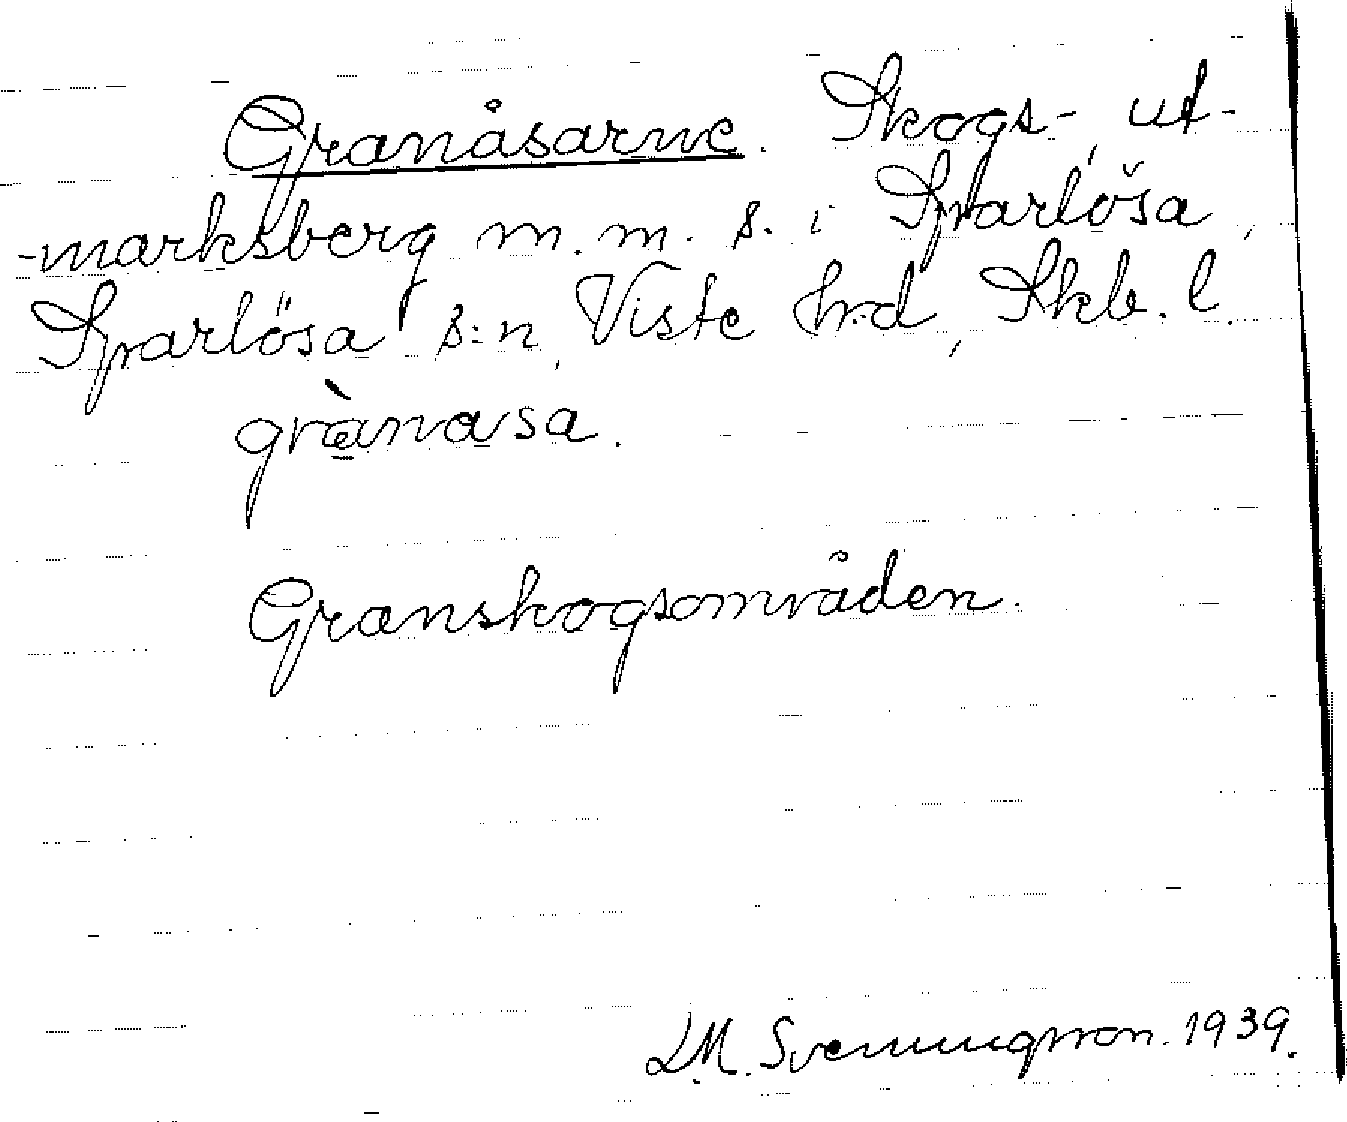 Granåsarne. Skogs-, ut-
-marksberg m.m. s. i Sparlösa,
Sparlösa s:n, Viste hd, Skb. l.
grànasa.
Granskogsområden.
L.M. Svenungsson. 1939.